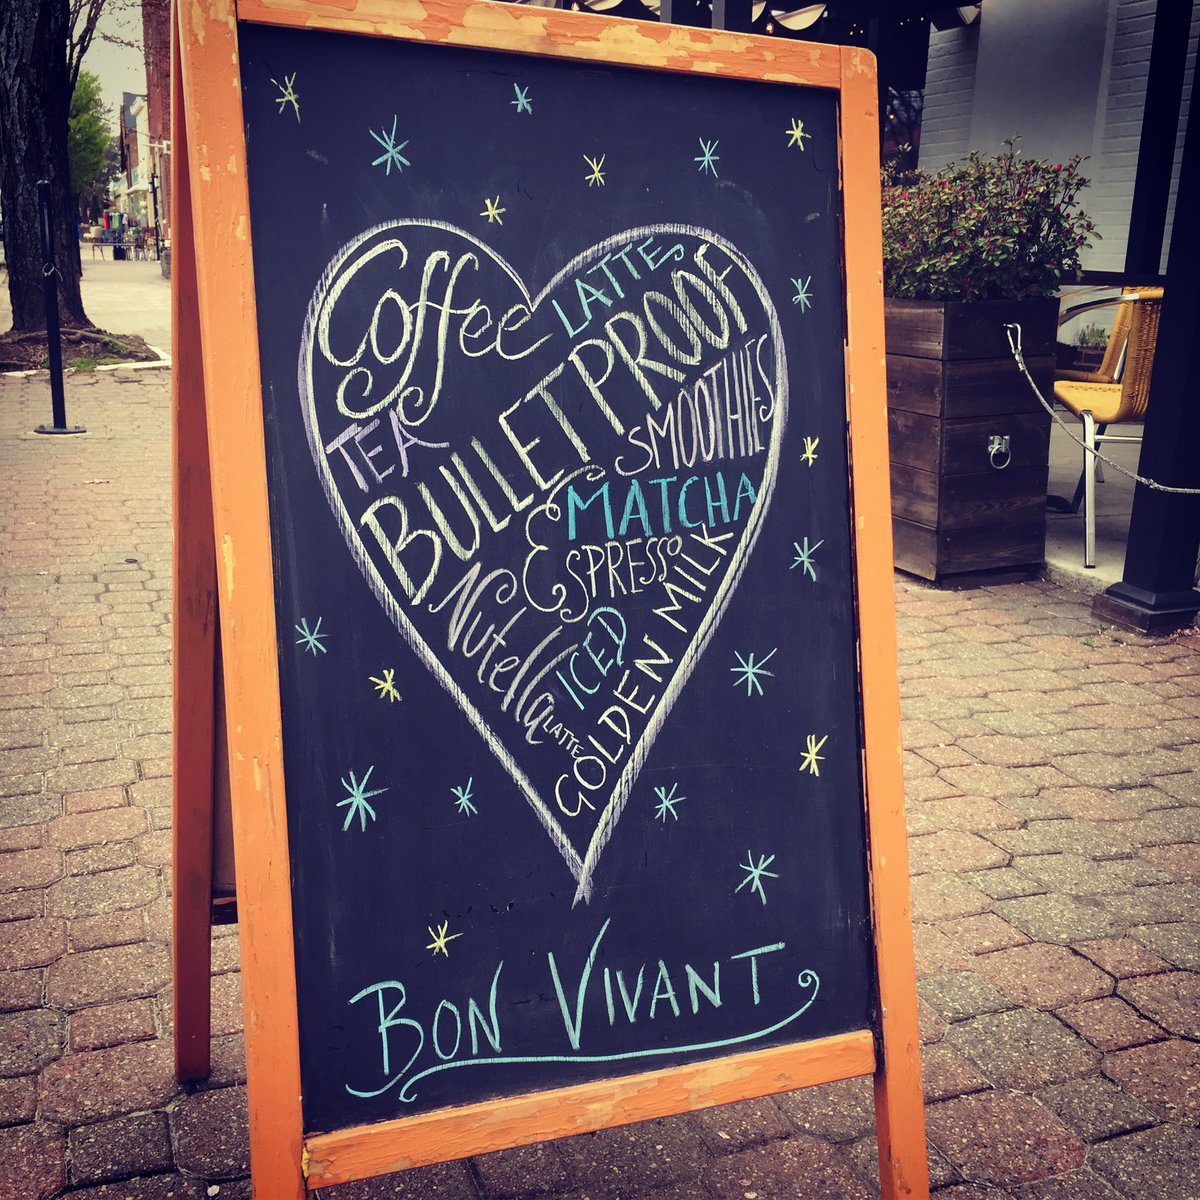 Coffee
LATTE
TEA
BULLETPROOF
SMOOTHIES
MATCHA
ESPRESSO
Nutella
LATTE
ICED
GOLDEN MILK
BON VIVANT